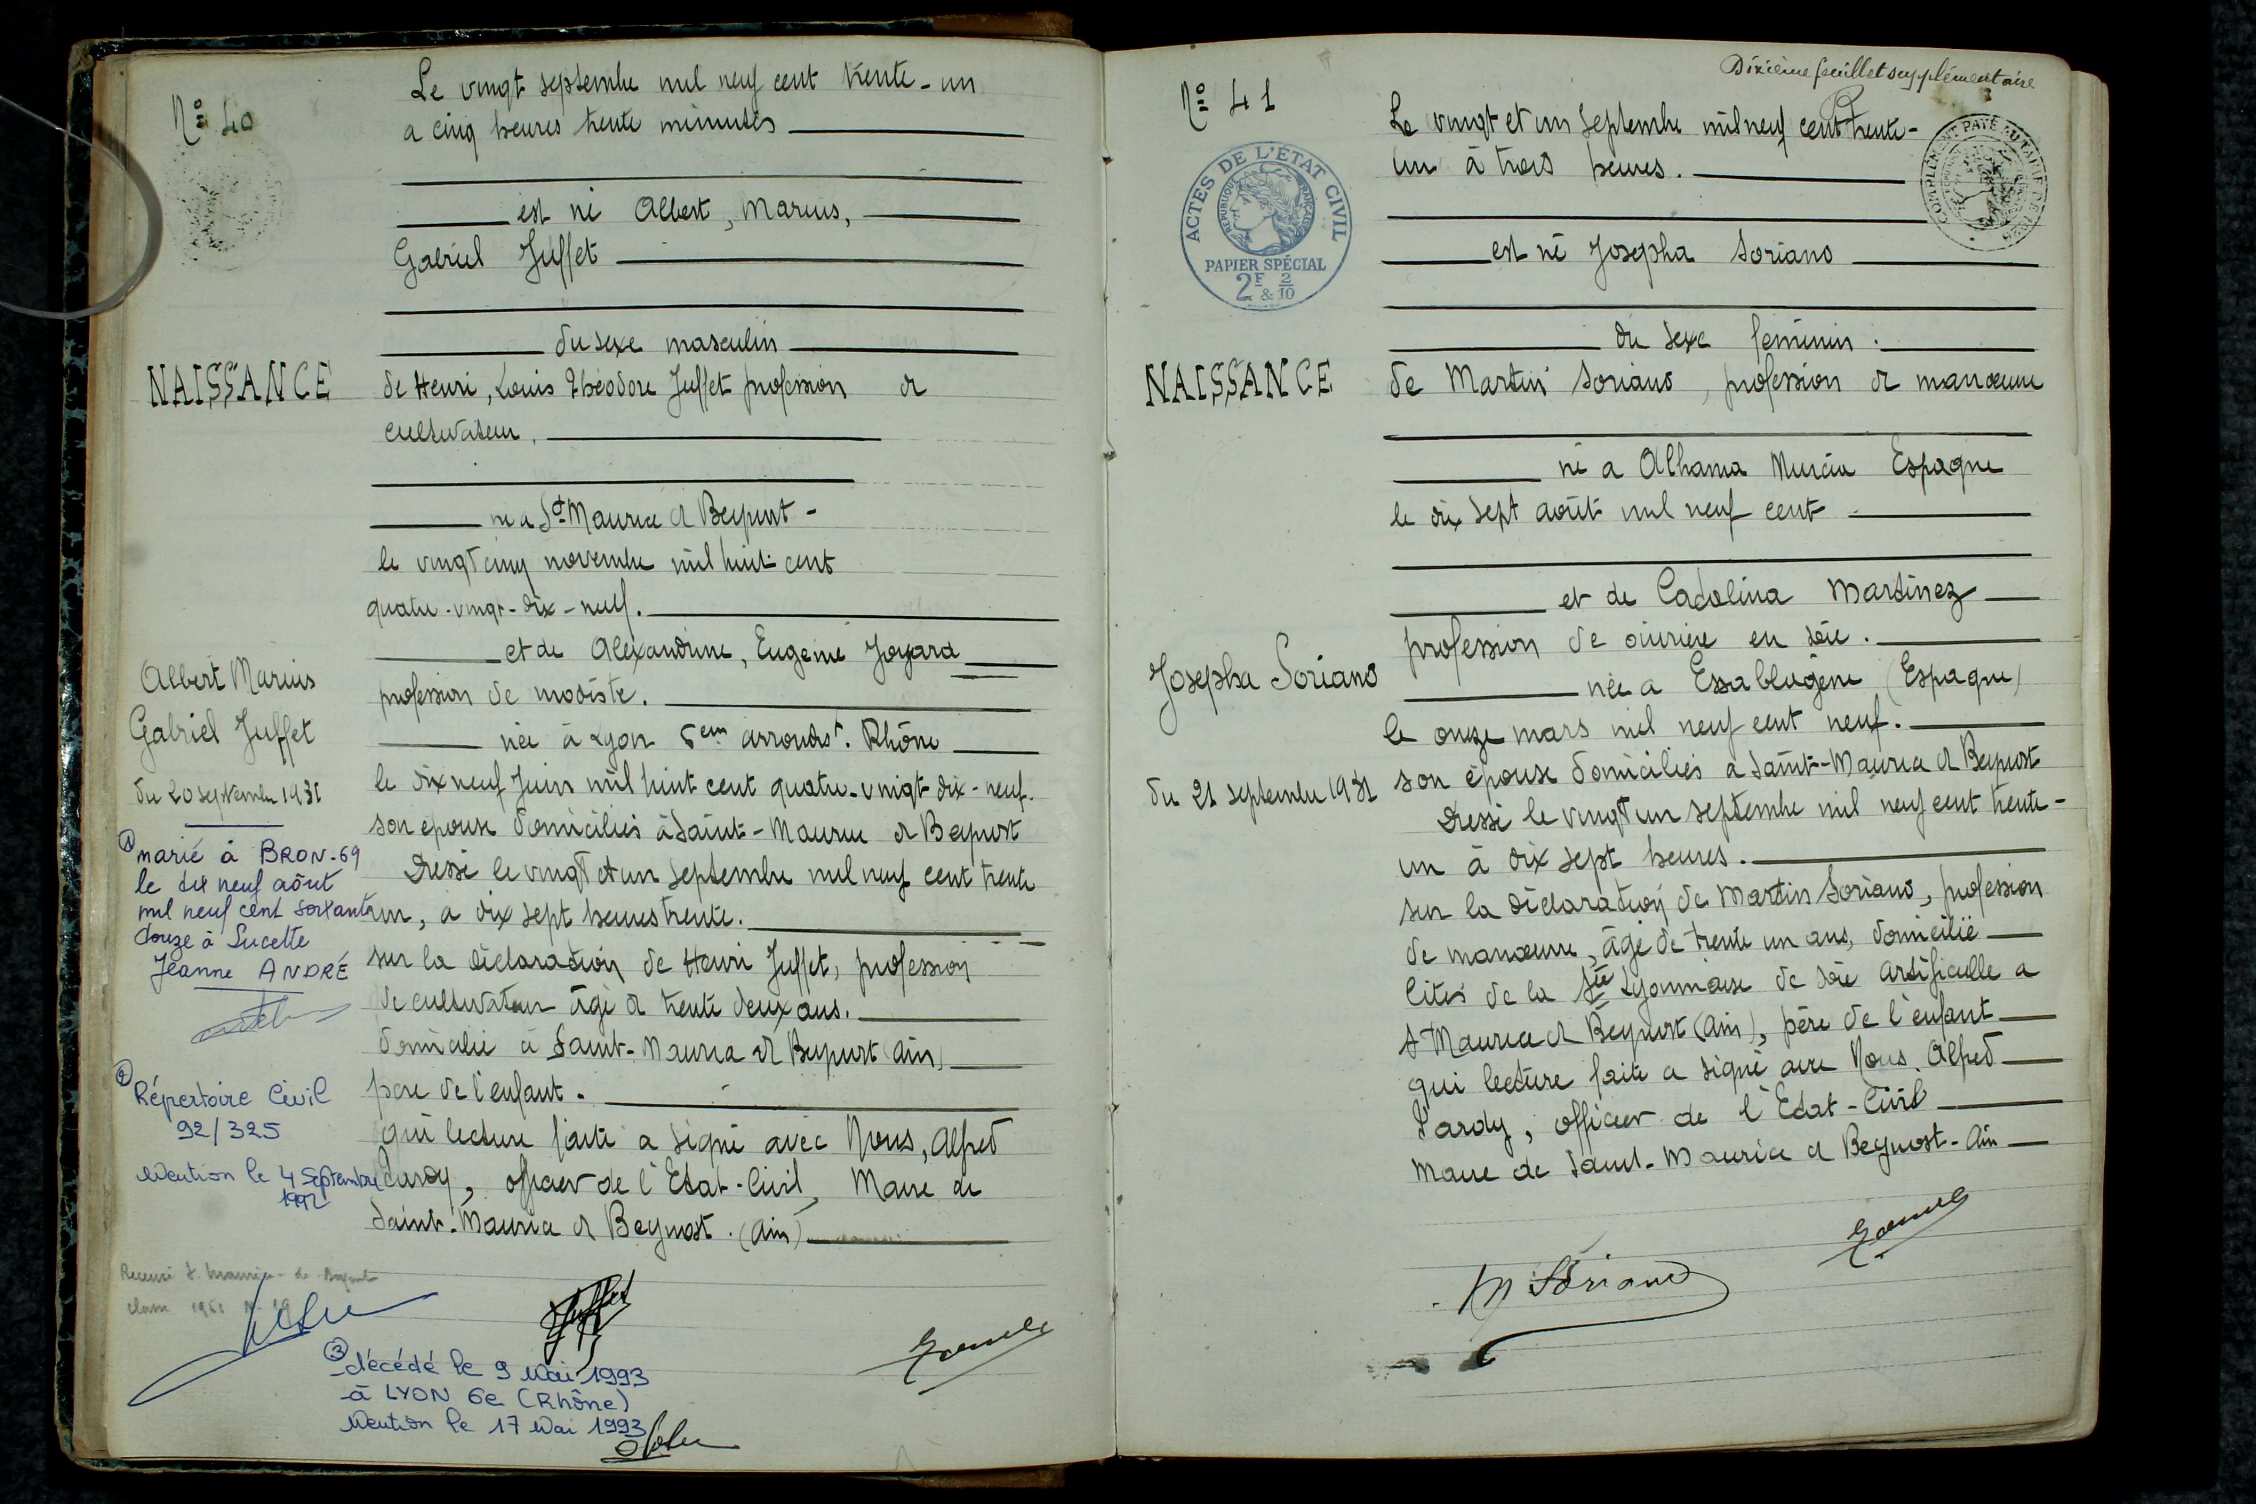 N° 40
Le vingt septembre mil neuf cent trente-un
a cinq heures trente minutes
est né Albert, Marius,
Gabriel Juffet
du sexe masculin
NAISSANCE
de Henri, Louis Théodore Juffet profession de
cultivateur.
né a St Maurice de Beynost-
le vingt cinq novembre mil huit cent
quatre-vingt-dix-neuf.
et de Alexandrine, Eugenie Joyard
profession de modiste.
née à Lyon 6em arrondist. Rhône
le dix neuf Juin mil huit cent quatre-vingt-dix-neuf.
son epouse domiciliés à Saint-Maurice de Beynost
Dressé le vingt et un septembre mil neuf cent trente
un, a dix sept heures trente.
sur la déclaration de Henri Juffet, profession
de cultivateur âgé de trente deux ans.
domicilié à Saint-Maurice de Beynost (Ain)
père de l'enfant.
qui lecture faite a signé avec Nous, Alfred
Pardy, officier de l'Etat-Civil, Maire de
Saint-Maurice de Beynost. (Ain)
Albert Marius
Gabriel Juffet
du 20 septembre 1931
1 marié à BRON-69
le dix neuf août
mil neuf cent soixante
douze à Lucette
Jeanne ANDRÉ
2 Répertoire Civil
92/325
Mention le 4 Septembre
1992
Recensé St Maurice-de-Beynost
classe 1951 N° 10
Juffet
3 décédé le 9 Mai 1993
à LYON 6e (Rhône)
Mention le 17 Mai 1993
Dixième feuillet supplémentaire
N° 41
ACTES DE L'ÉTAT CIVIL
RÉPUBLIQUE FRANÇAISE
PAPIER SPÉCIAL
2F & 2/10
COMPLÉMENT PAYÉ AU TIMBRE DE
Le vingt et un Septembre mil neuf cent trente-
un à trois heures.
est né Josepha Soriano
du sexe féminin.
NAISSANCE
de Martin Soriano, profession de manœuvre
né a Alhama Murcia Espagne
le dix sept août mil neuf cent
et de Cadolina Martinez
profession de ouvrière en soie.
née a Essablugène (Espagne)
le onze mars mil neuf cent neuf.
son épouse domiciliés a Saint-Maurice de Beynost
Dressé le vingt un septembre mil neuf cent trente-
un à dix sept heures.
sur la déclaration de Martin Soriano, profession
de manœuvre, âgé de trente un ans, domicilié
cités de la Sté Lyonnaise de soie artificielle a
St Maurice de Beynost (Ain), père de l'enfant
qui lecture faite a signé avec Nous, Alfred
Pardy, officier de l'Etat-Civil
Maire de Saint-Maurice de Beynost-Ain
Josepha Soriano
du 21 septembre 1931
M Soriano